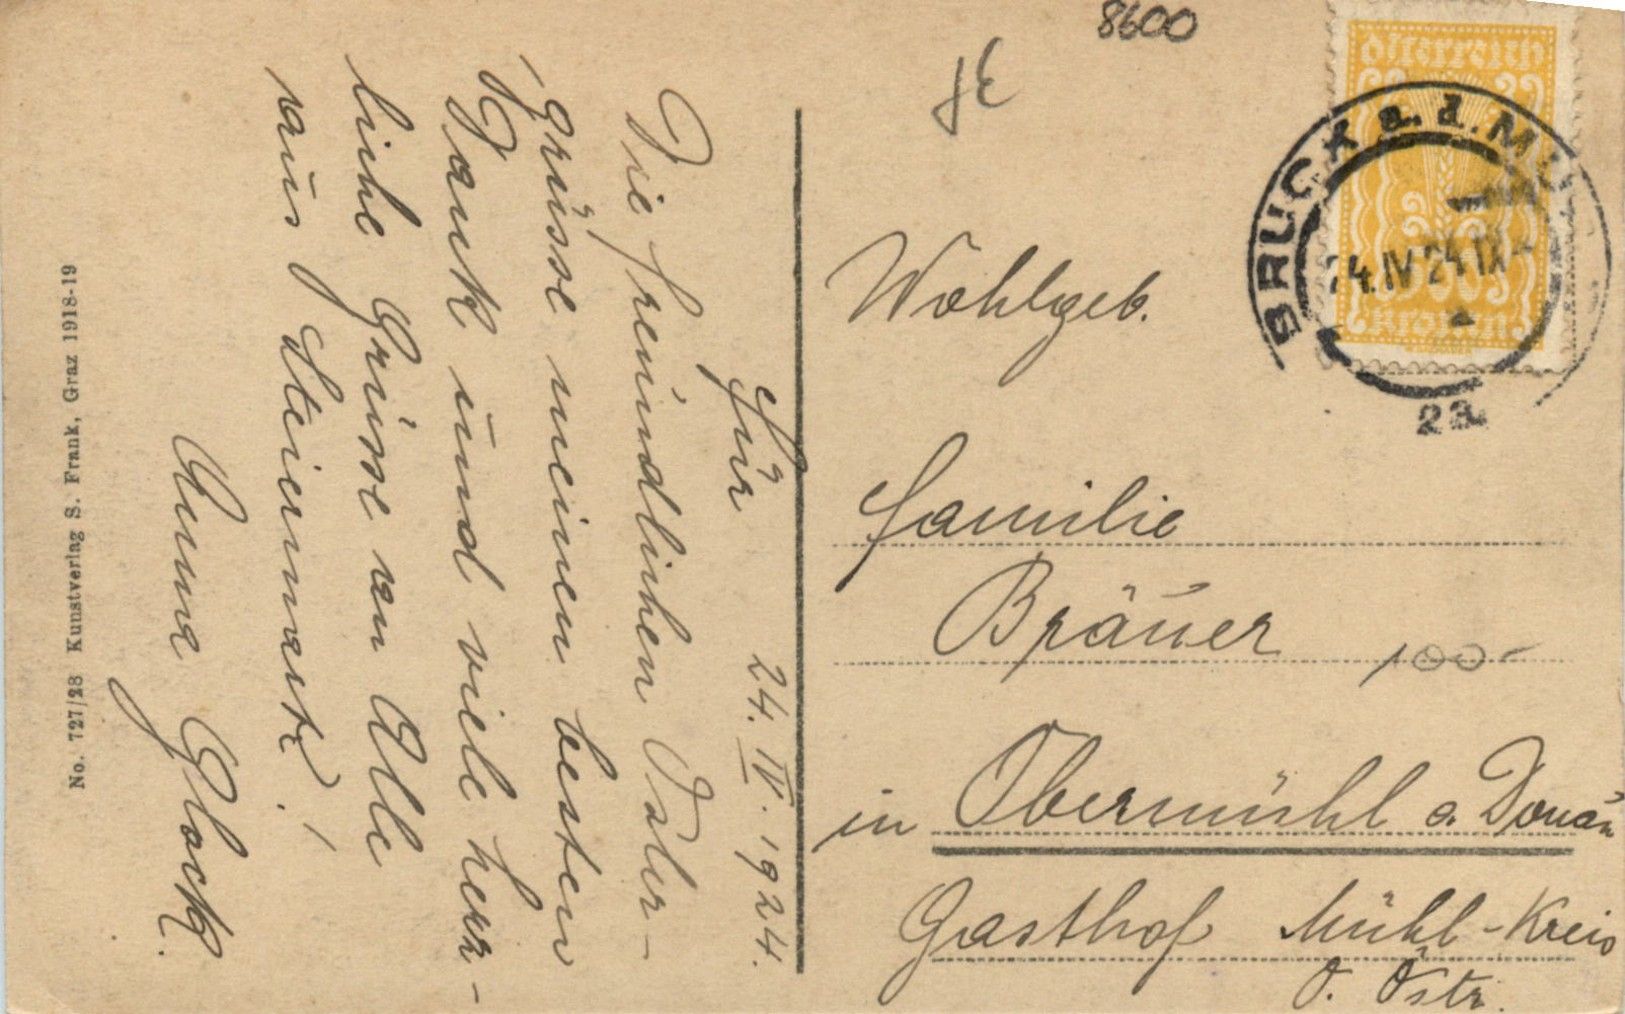 24. IV. 1924.
Für
Die freundlichen Oster-
grüsse meinen besten
Dank und viele herz-
liche Grüsse an Alle
aus Steiermark!
Anna Glock.
No. 727/28 Kunstverlag S. Frank, Graz 1918-19
8600
Österreich
Kronen
BRUCK a. d. MU
24. IV 24. IX
2a
Wohlgeb.
Familie
Bräuer
100-
in Obermühl a. Donau
Gasthof Mühl-Kreis
O. Östr.